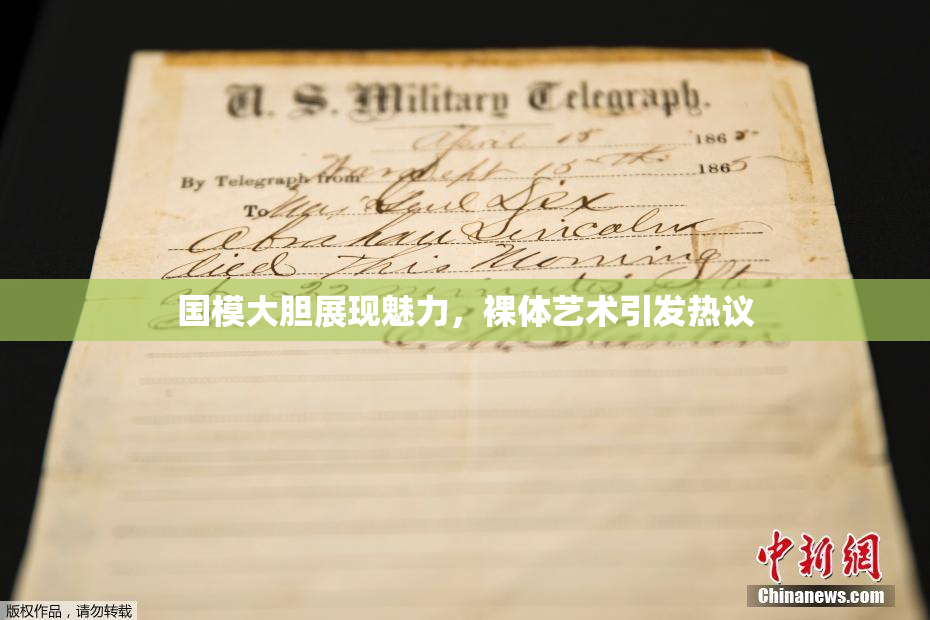 U. S. Military Telegraph.
April 15 1865
By Telegraph from War Dept 15th 1865
To Maj Genl Dix
Abraham Lincoln
died This Morning
at 22 minutes after
国模大胆展现魅力，裸体艺术引发热议
中新网
Chinanews.com
版权作品，请勿转载